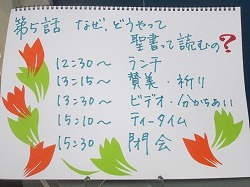 第5話 なぜ、どうやって
聖書って読むの?
12:30〜 ランチ
13:15〜 賛美・祈り
13:30〜 ビデオ・分かちあい
15:10〜 ティータイム
15:30 閉会